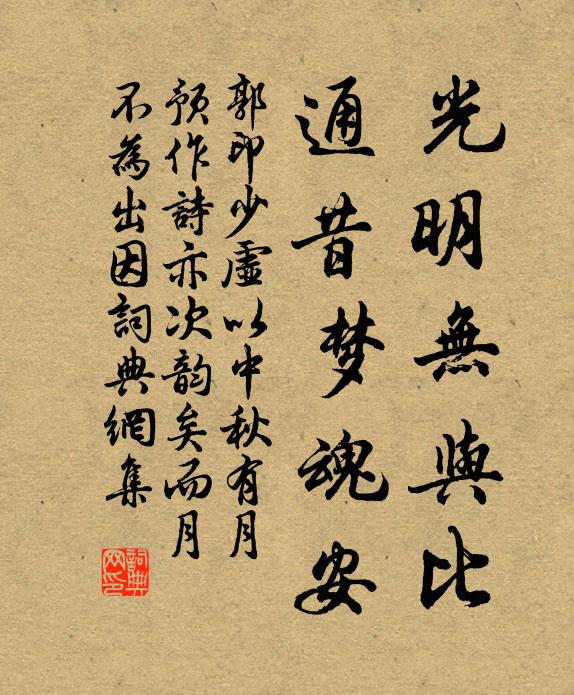 光明無與比
通昔梦魂安
郭印少虛以中秋有月
預作詩亦次韵矣而月
不為出因詞典網集
詞典网印